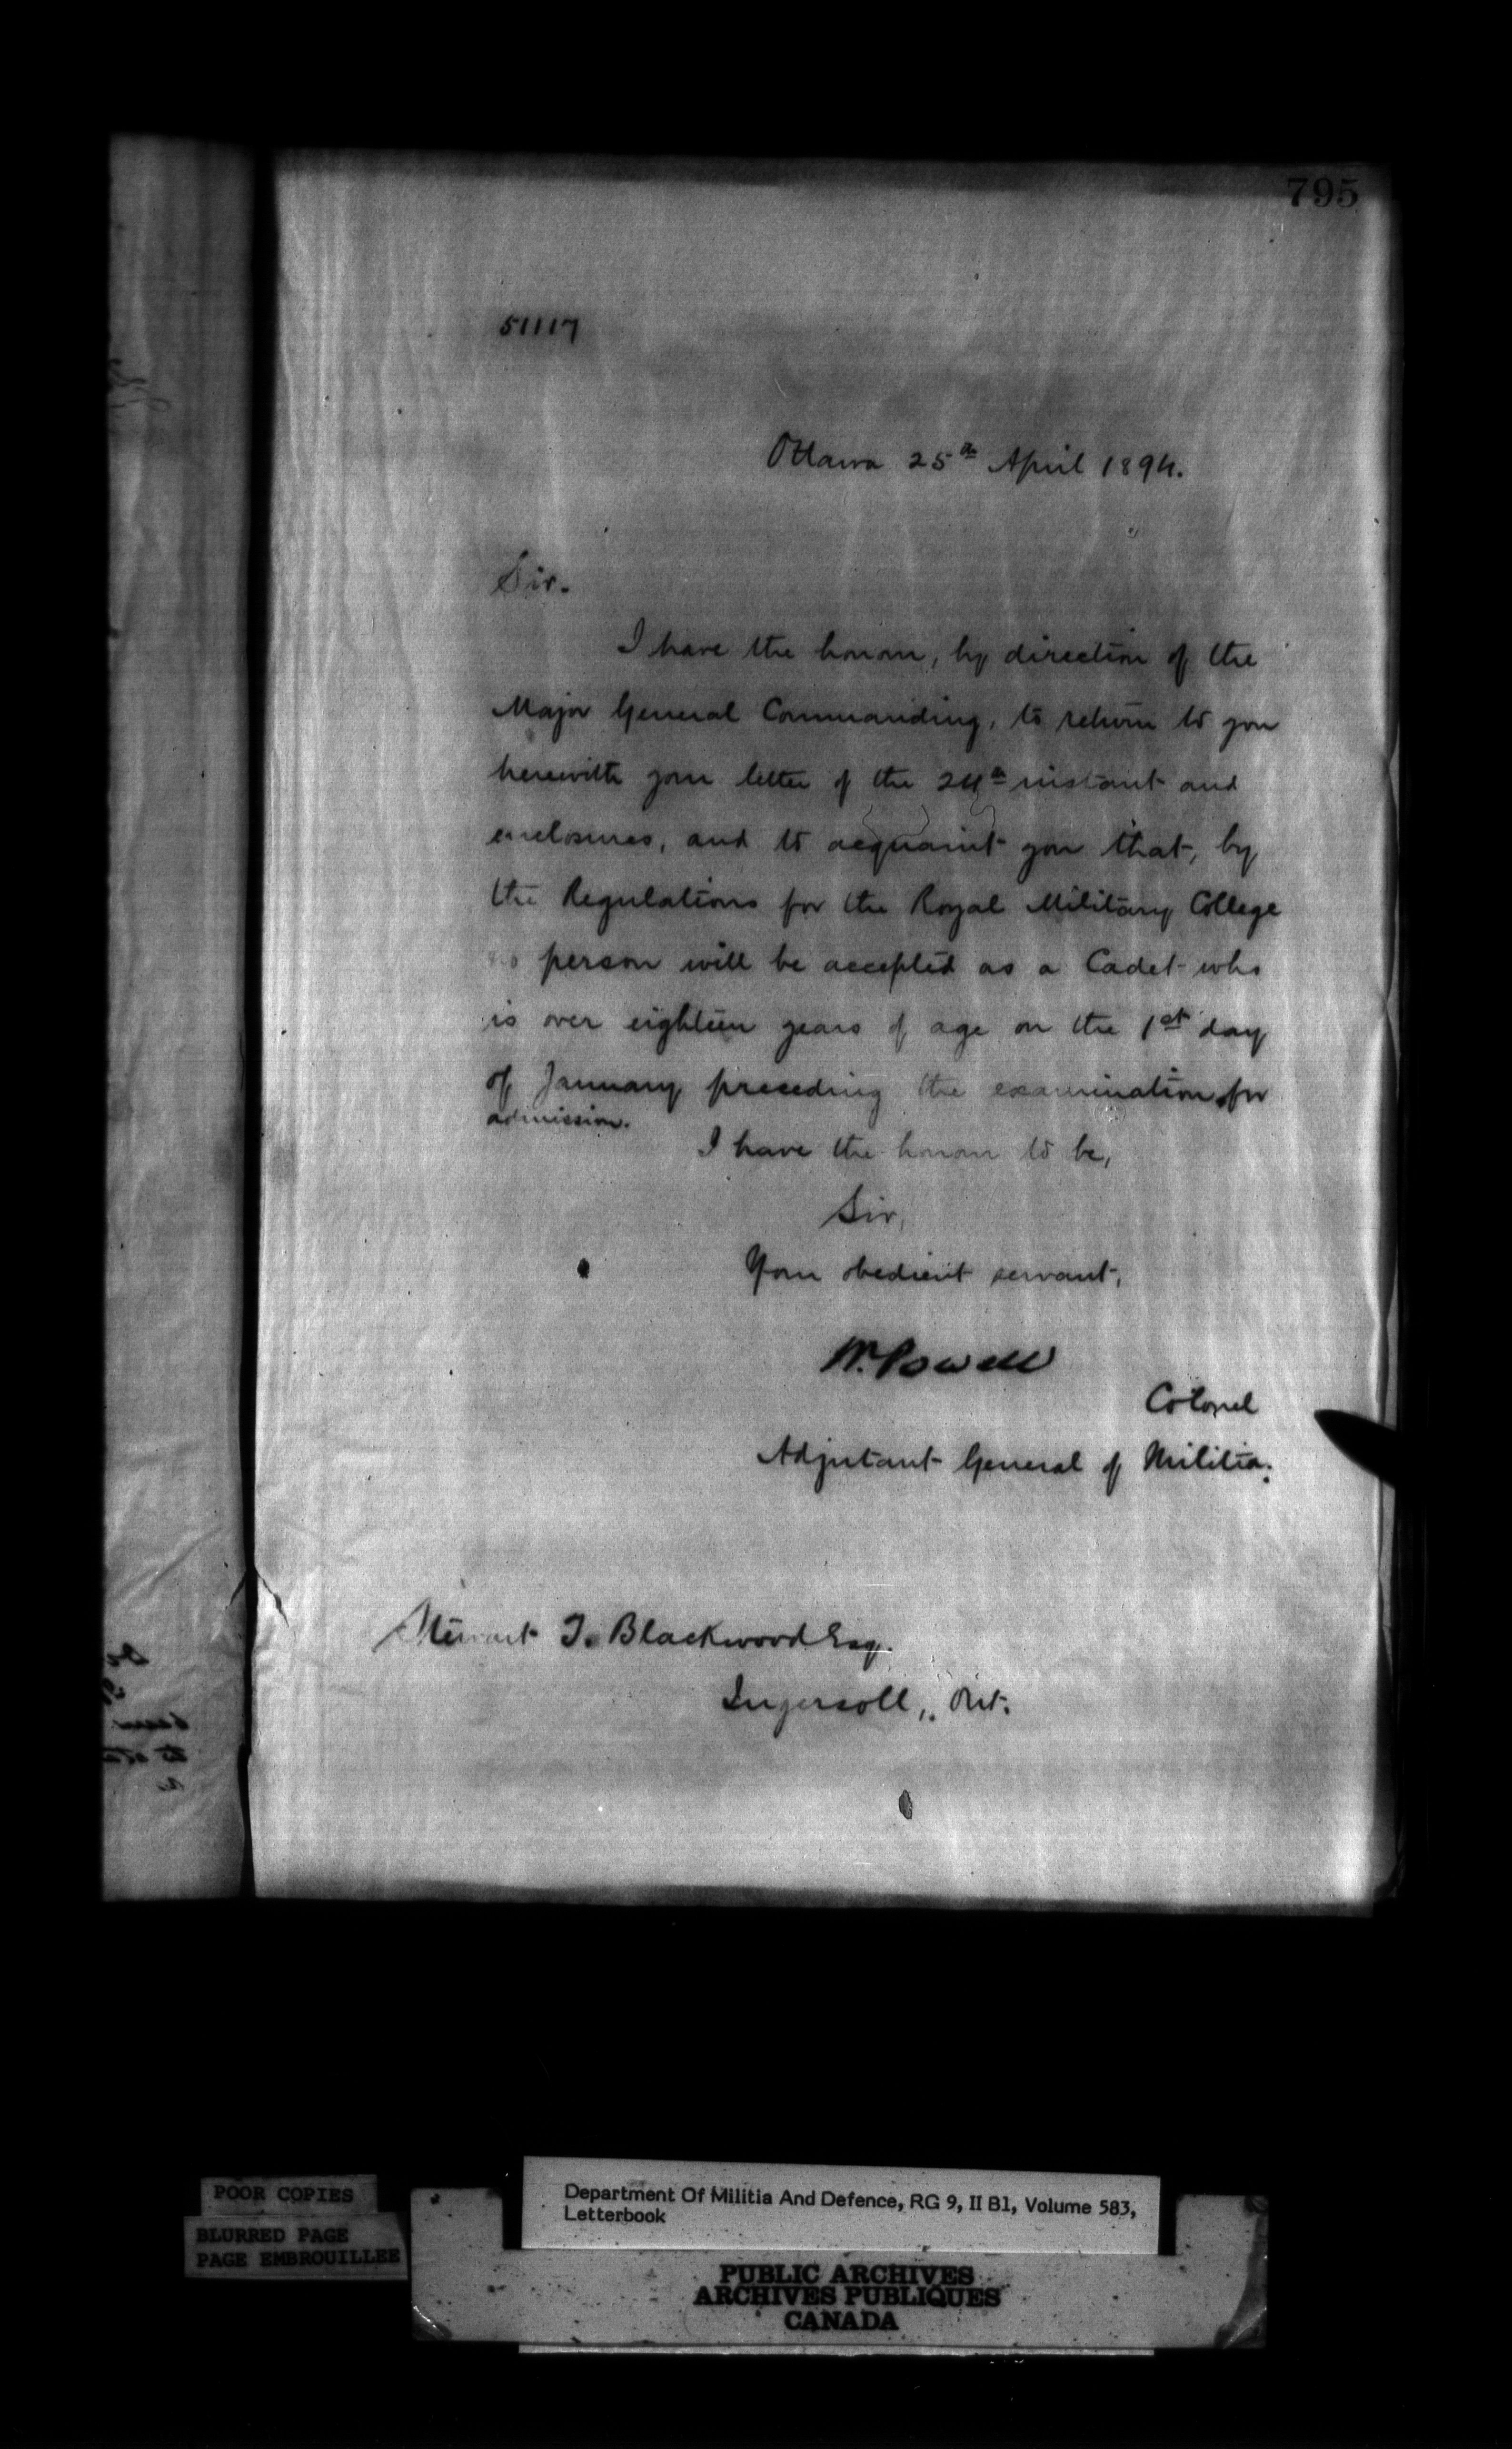 795
51117
Ottawa 25th April 1894.
Sir.
I have the honour, by direction of the
Major General Commanding, to return to you
herewith your letter of the 24th instant and
enclosures, and to acquaint you that, by
the Regulations for the Royal Military College
no person will be accepted as a Cadet who
is over eighteen years of age on the 1st day
of January preceding the examination for
admission.
I have the honour to be,
Sir,
Your obedient servant,
W. Powell
Colonel
Adjutant General of Militia.
Stewart J. Blackwood Esq.
Ingersoll, Ont.
POOR COPIES
BLURRED PAGE
PAGE EMBROUILLEE
Department Of Militia And Defence, RG 9, II B1, Volume 583,
Letterbook
PUBLIC ARCHIVES
ARCHIVES PUBLIQUES
CANADA